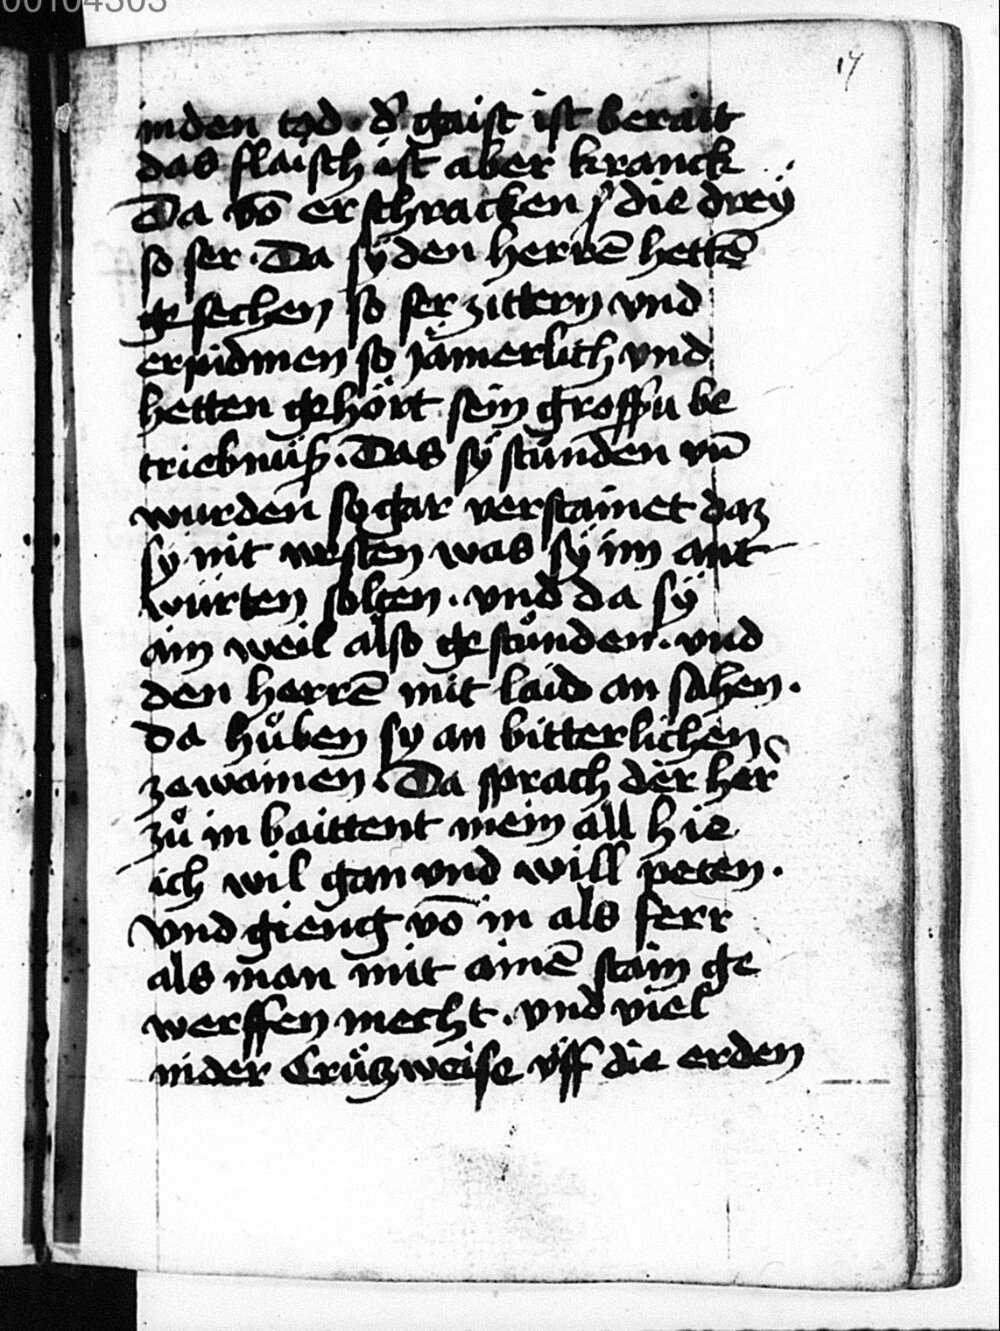 00104303
17
in den tod · d' gaist ist berait
das flaisch ist aber kranck
Da vō erschracken die dreÿ
so ser · Da sÿ den herrē hettē
gesechen so ser zittern vnd
erpidmen so jämerlich vnd
hetten gehört sein grossu be
triebnuß · Das sÿ stůnden vn̄
wurden so gar verstainet daz
sy nit westen was sÿ im ant
würten solten · vnd da sÿ
ain weil also gestůnden · vnd
den herrē mit laid an sahen ·
da hůben sy an bitterlichen
ze wainen · Da sprach der her
zů in baittent mein all hie
ich wil gan vnd will peten ·
Vnd gieng vō in als ferr
als man mit ainē stain ge
werffen mecht · vnd viel
nider Crützweise vff die erden